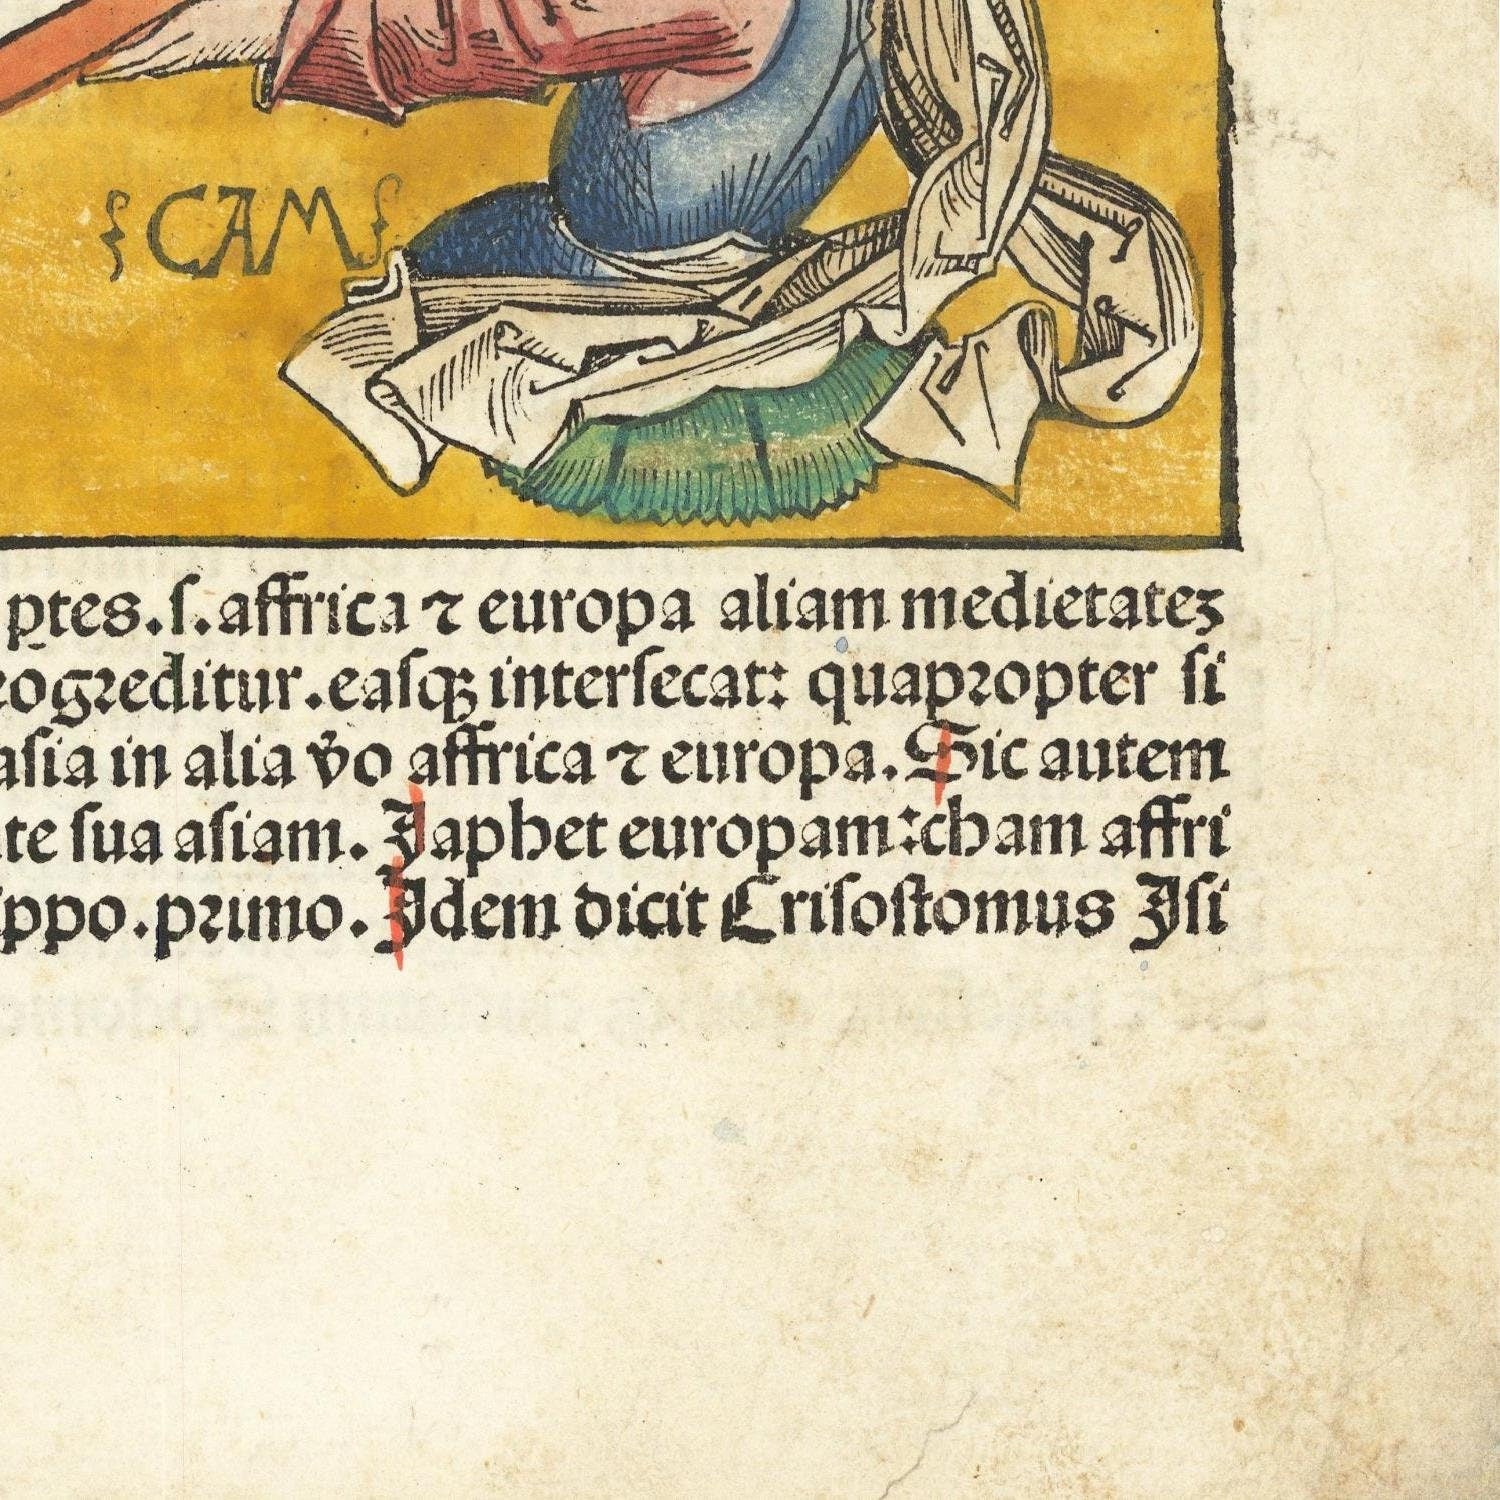 CAM
ꝑtes.ſ.affrica ⁊ europa aliam medietateꝫ
eogreditur.eaſqꝫ interſecat: quapropter ſi
aſia in alia v̄o affrica ⁊ europa. Sic autem
te ſua aſiam. Japhet europam: cham affri
ppo.primo. Idem dicit Criſoſtomus Iſi